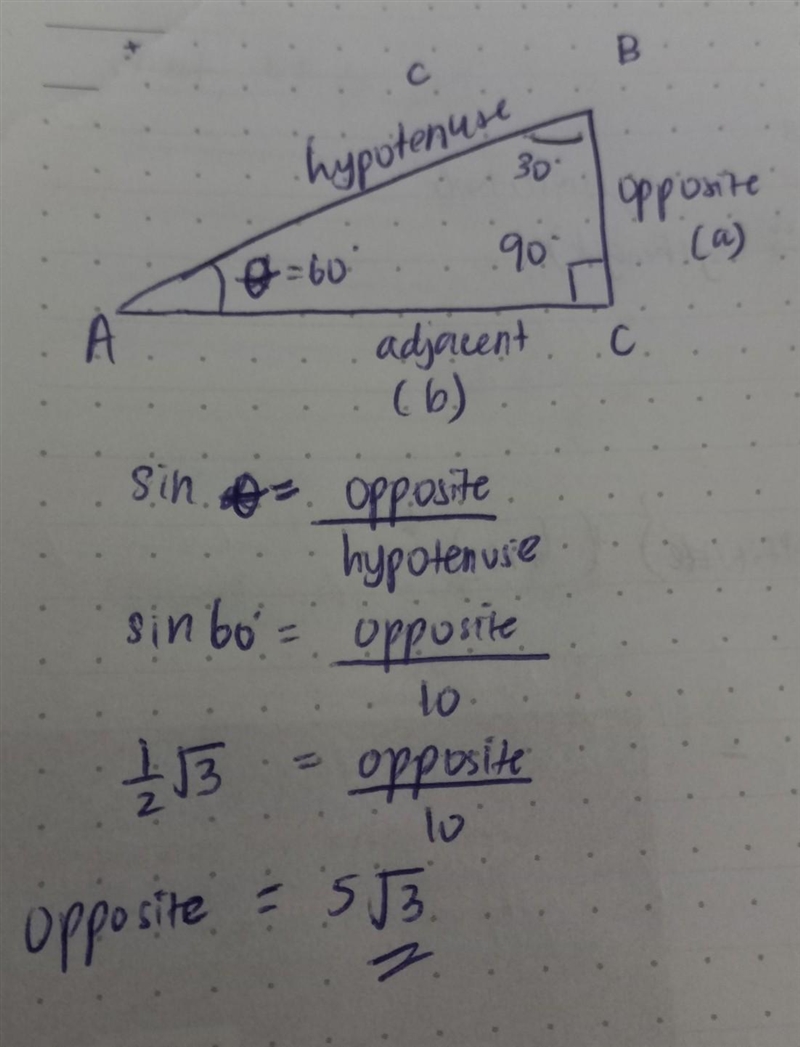 c
B
hypotenuse
30°
opposite
(a)
90°
θ = 60°
A
adjacent
C
(b)
sin θ = opposite / hypotenuse
sin 60° = opposite / 10
1/2 √3 = opposite / 10
opposite = 5√3